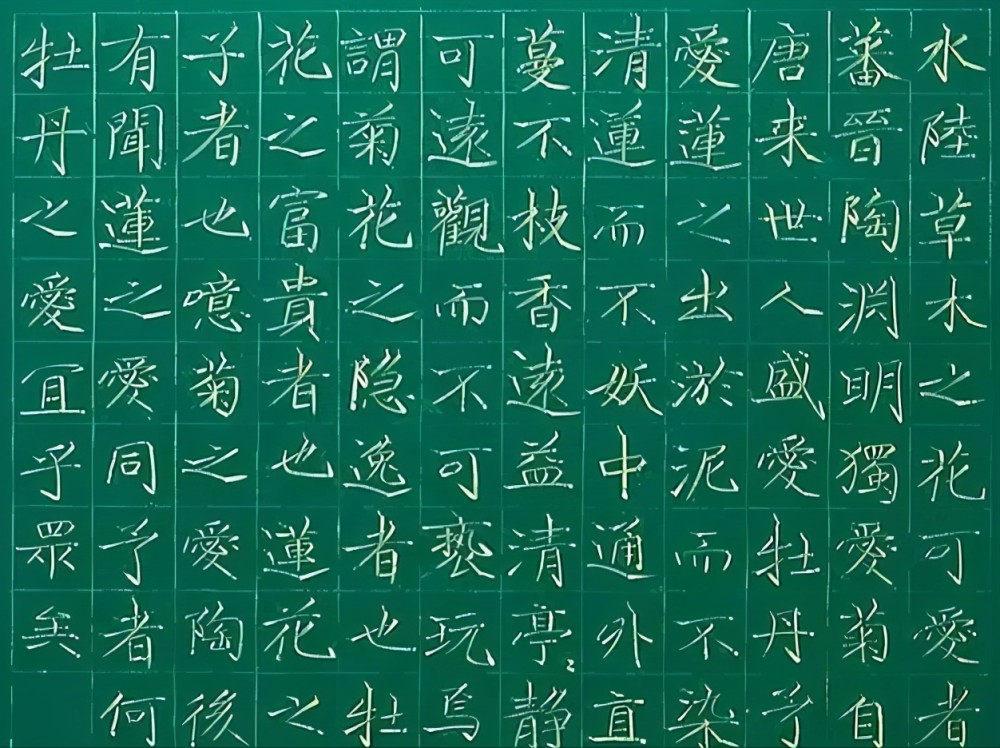 水陸草木之花可愛者
蕃晉陶渊明獨愛菊自
唐来世人盛愛牡丹予
愛蓮之出淤泥而不染
清漣而不妖中通外直
蔓不枝香遠益清亭〻静
可遠觀而不可亵玩焉
謂菊花之隐逸者也牡
花之富貴者也蓮花之
子者也噫菊之愛陶後
有聞蓮之愛同予者何
牡丹之愛宜乎眾矣